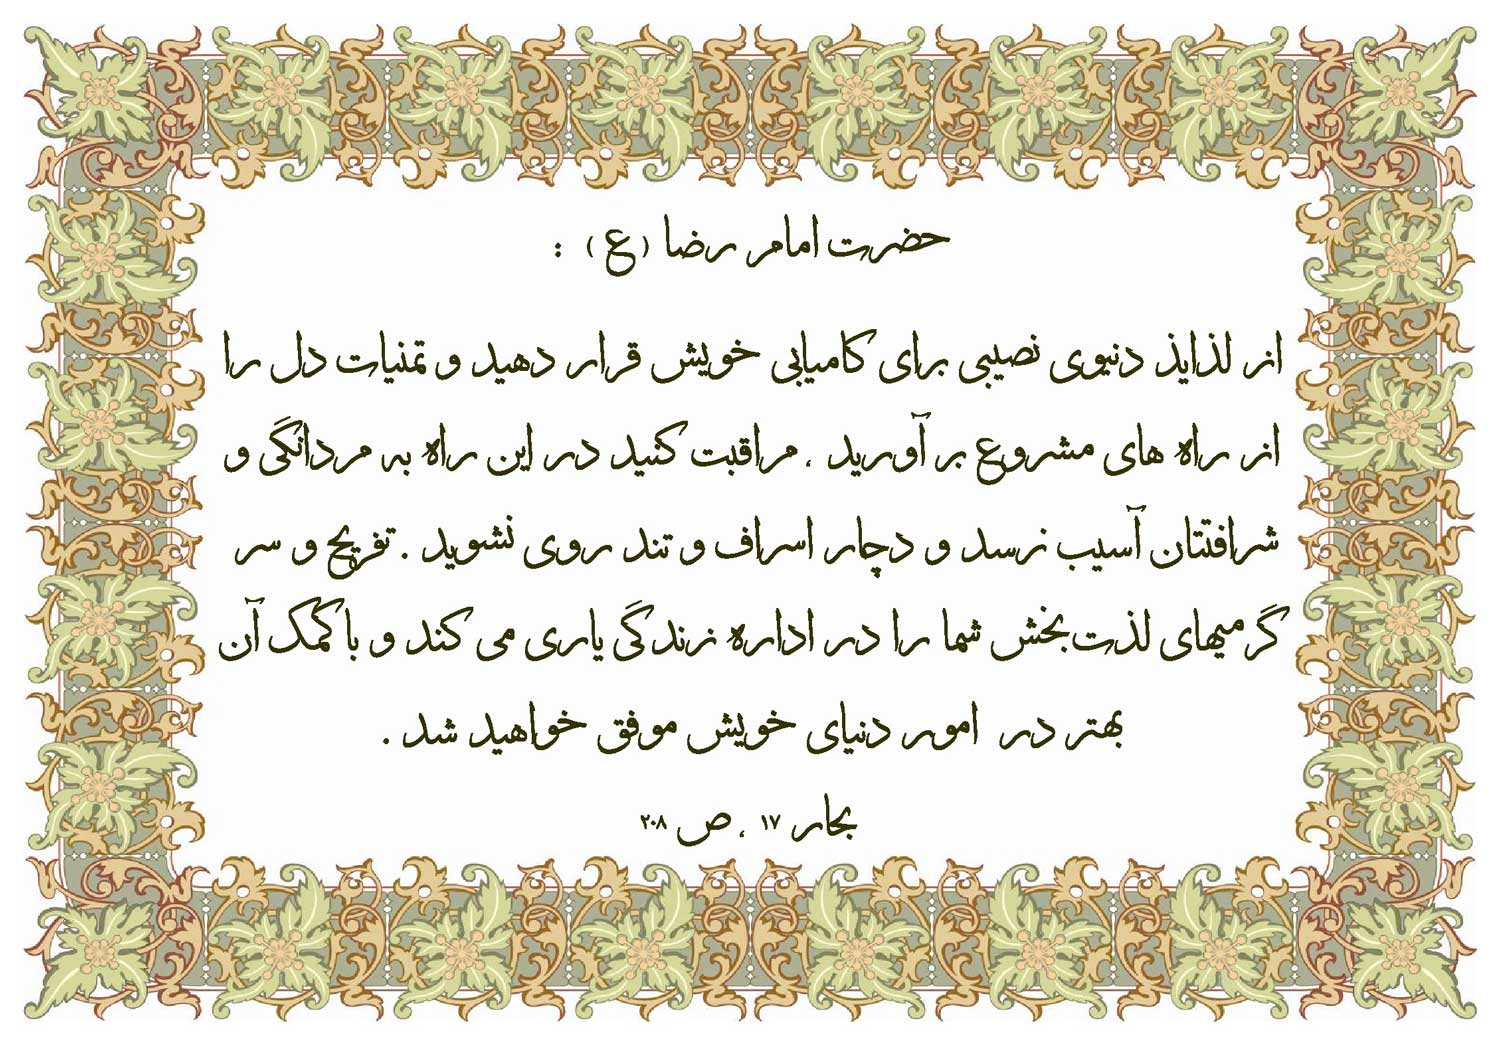 حضرت امام رضا (ع) :
از لذایذ دنیوی نصیبی برای کامیابی خویش قرار دهید و تمنیات دل را
از راه های مشروع بر آورید . مراقبت کنید در این راه به مردانگی و
شرافتتان آسیب نرسد و دچار اسراف و تند روی نشوید . تفریح و سر
گرمیهای لذت بخش شما را در اداره زندگی یاری می کند و با کمک آن
بهتر در امور دنیای خویش موفق خواهید شد .
بحار ۱۷ ، ص ۲۰۸